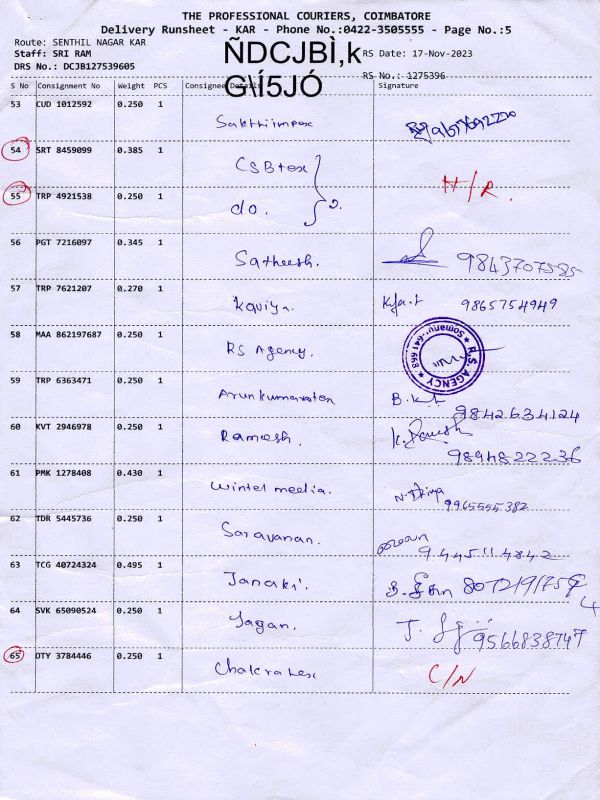 THE PROFESSIONAL COURIERS, COIMBATORE
Delivery Runsheet - KAR - Phone No.:0422-3505555 - Page No.:5
Route: SENTHIL NAGAR KAR
Staff: SRI RAM
ÑDCJBÌ,k
RS Date: 17-Nov-2023
DRS No.: DCJB127539605
G\Í5JÓ
RS No.: 1275396
S No Consignment No Weight PCS Consignee Details Signature
53 CUD 1012592 0.250 1
Sakthiimpex
54 SRT 8459099 0.385 1
CSBtex
H/R.
55 TRP 4921538 0.250 1
do. 2.
56 PGT 7216097 0.345 1
Satheesh. 9843707585
57 TRP 7621207 0.270 1
Kaviya. 9865754949
58 MAA 862197687 0.250 1
RS Agency. R.S. AGENCY Somanur-641 668
59 TRP 6363471 0.250 1
Arunkumaratex 9842634124
60 KVT 2946978 0.250 1
Ramesh. 9894822236
61 PMK 1278408 0.430 1
Wintel media. 9965555382
62 TDR 5445736 0.250 1
Saravanan. 9445114842
63 TCG 40724324 0.495 1
Janaki.
64 SVK 65090524 0.250 1
Jagan. 9566838747
65 DTY 3784446 0.250 1
Chakratex C/N